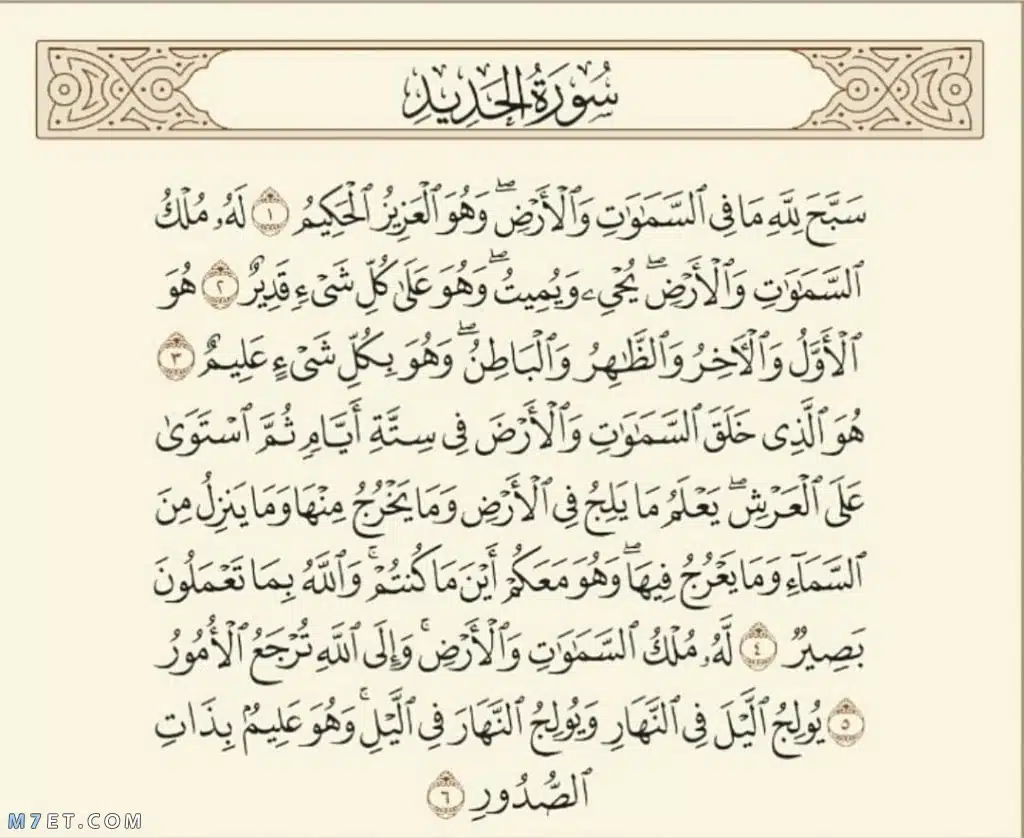 سُورَةُ الحَدِيدِ
سَبَّحَ لِلَّهِ مَا فِي ٱلسَّمَٰوَٰتِ وَٱلۡأَرۡضِۖ وَهُوَ ٱلۡعَزِيزُ ٱلۡحَكِيمُ ١ لَهُۥ مُلۡكُ
ٱلسَّمَٰوَٰتِ وَٱلۡأَرۡضِۖ يُحۡيِۦ وَيُمِيتُۖ وَهُوَ عَلَىٰ كُلِّ شَيۡءٖ قَدِيرٌ ٢ هُوَ
ٱلۡأَوَّلُ وَٱلۡأٓخِرُ وَٱلظَّٰهِرُ وَٱلۡبَاطِنُۖ وَهُوَ بِكُلِّ شَيۡءٍ عَلِيمٌ ٣
هُوَ ٱلَّذِي خَلَقَ ٱلسَّمَٰوَٰتِ وَٱلۡأَرۡضَ فِي سِتَّةِ أَيَّامٖ ثُمَّ ٱسۡتَوَىٰ
عَلَى ٱلۡعَرۡشِۖ يَعۡلَمُ مَا يَلِجُ فِي ٱلۡأَرۡضِ وَمَا يَخۡرُجُ مِنۡهَا وَمَا يَنزِلُ مِنَ
ٱلسَّمَآءِ وَمَا يَعۡرُجُ فِيهَاۖ وَهُوَ مَعَكُمۡ أَيۡنَ مَا كُنتُمۡۚ وَٱللَّهُ بِمَا تَعۡمَلُونَ
بَصِيرٞ ٤ لَّهُۥ مُلۡكُ ٱلسَّمَٰوَٰتِ وَٱلۡأَرۡضِۚ وَإِلَى ٱللَّهِ تُرۡجَعُ ٱلۡأُمُورُ
٥ يُولِجُ ٱلَّيۡلَ فِي ٱلنَّهَارِ وَيُولِجُ ٱلنَّهَارَ فِي ٱلَّيۡلِۚ وَهُوَ عَلِيمُۢ بِذَاتِ
ٱلصُّدُورِ ٦
M7ET.COM